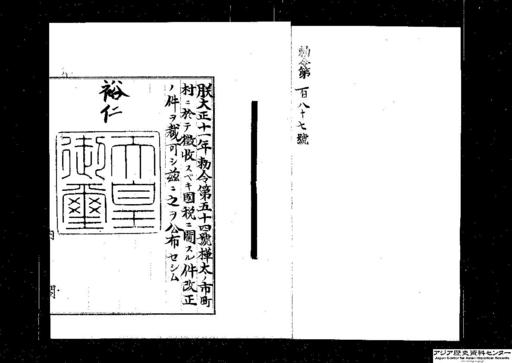 勅令第百八十七號
朕大正十一年勅令第五十四號樺太ノ市町
村ニ於テ徴收スベキ國税ニ關スル件改正
ノ件ヲ裁可シ茲ニ之ヲ公布セシム
裕仁
天皇
御璽
内閣
アジア歴史資料センター
Japan Center for Asian Historical Records